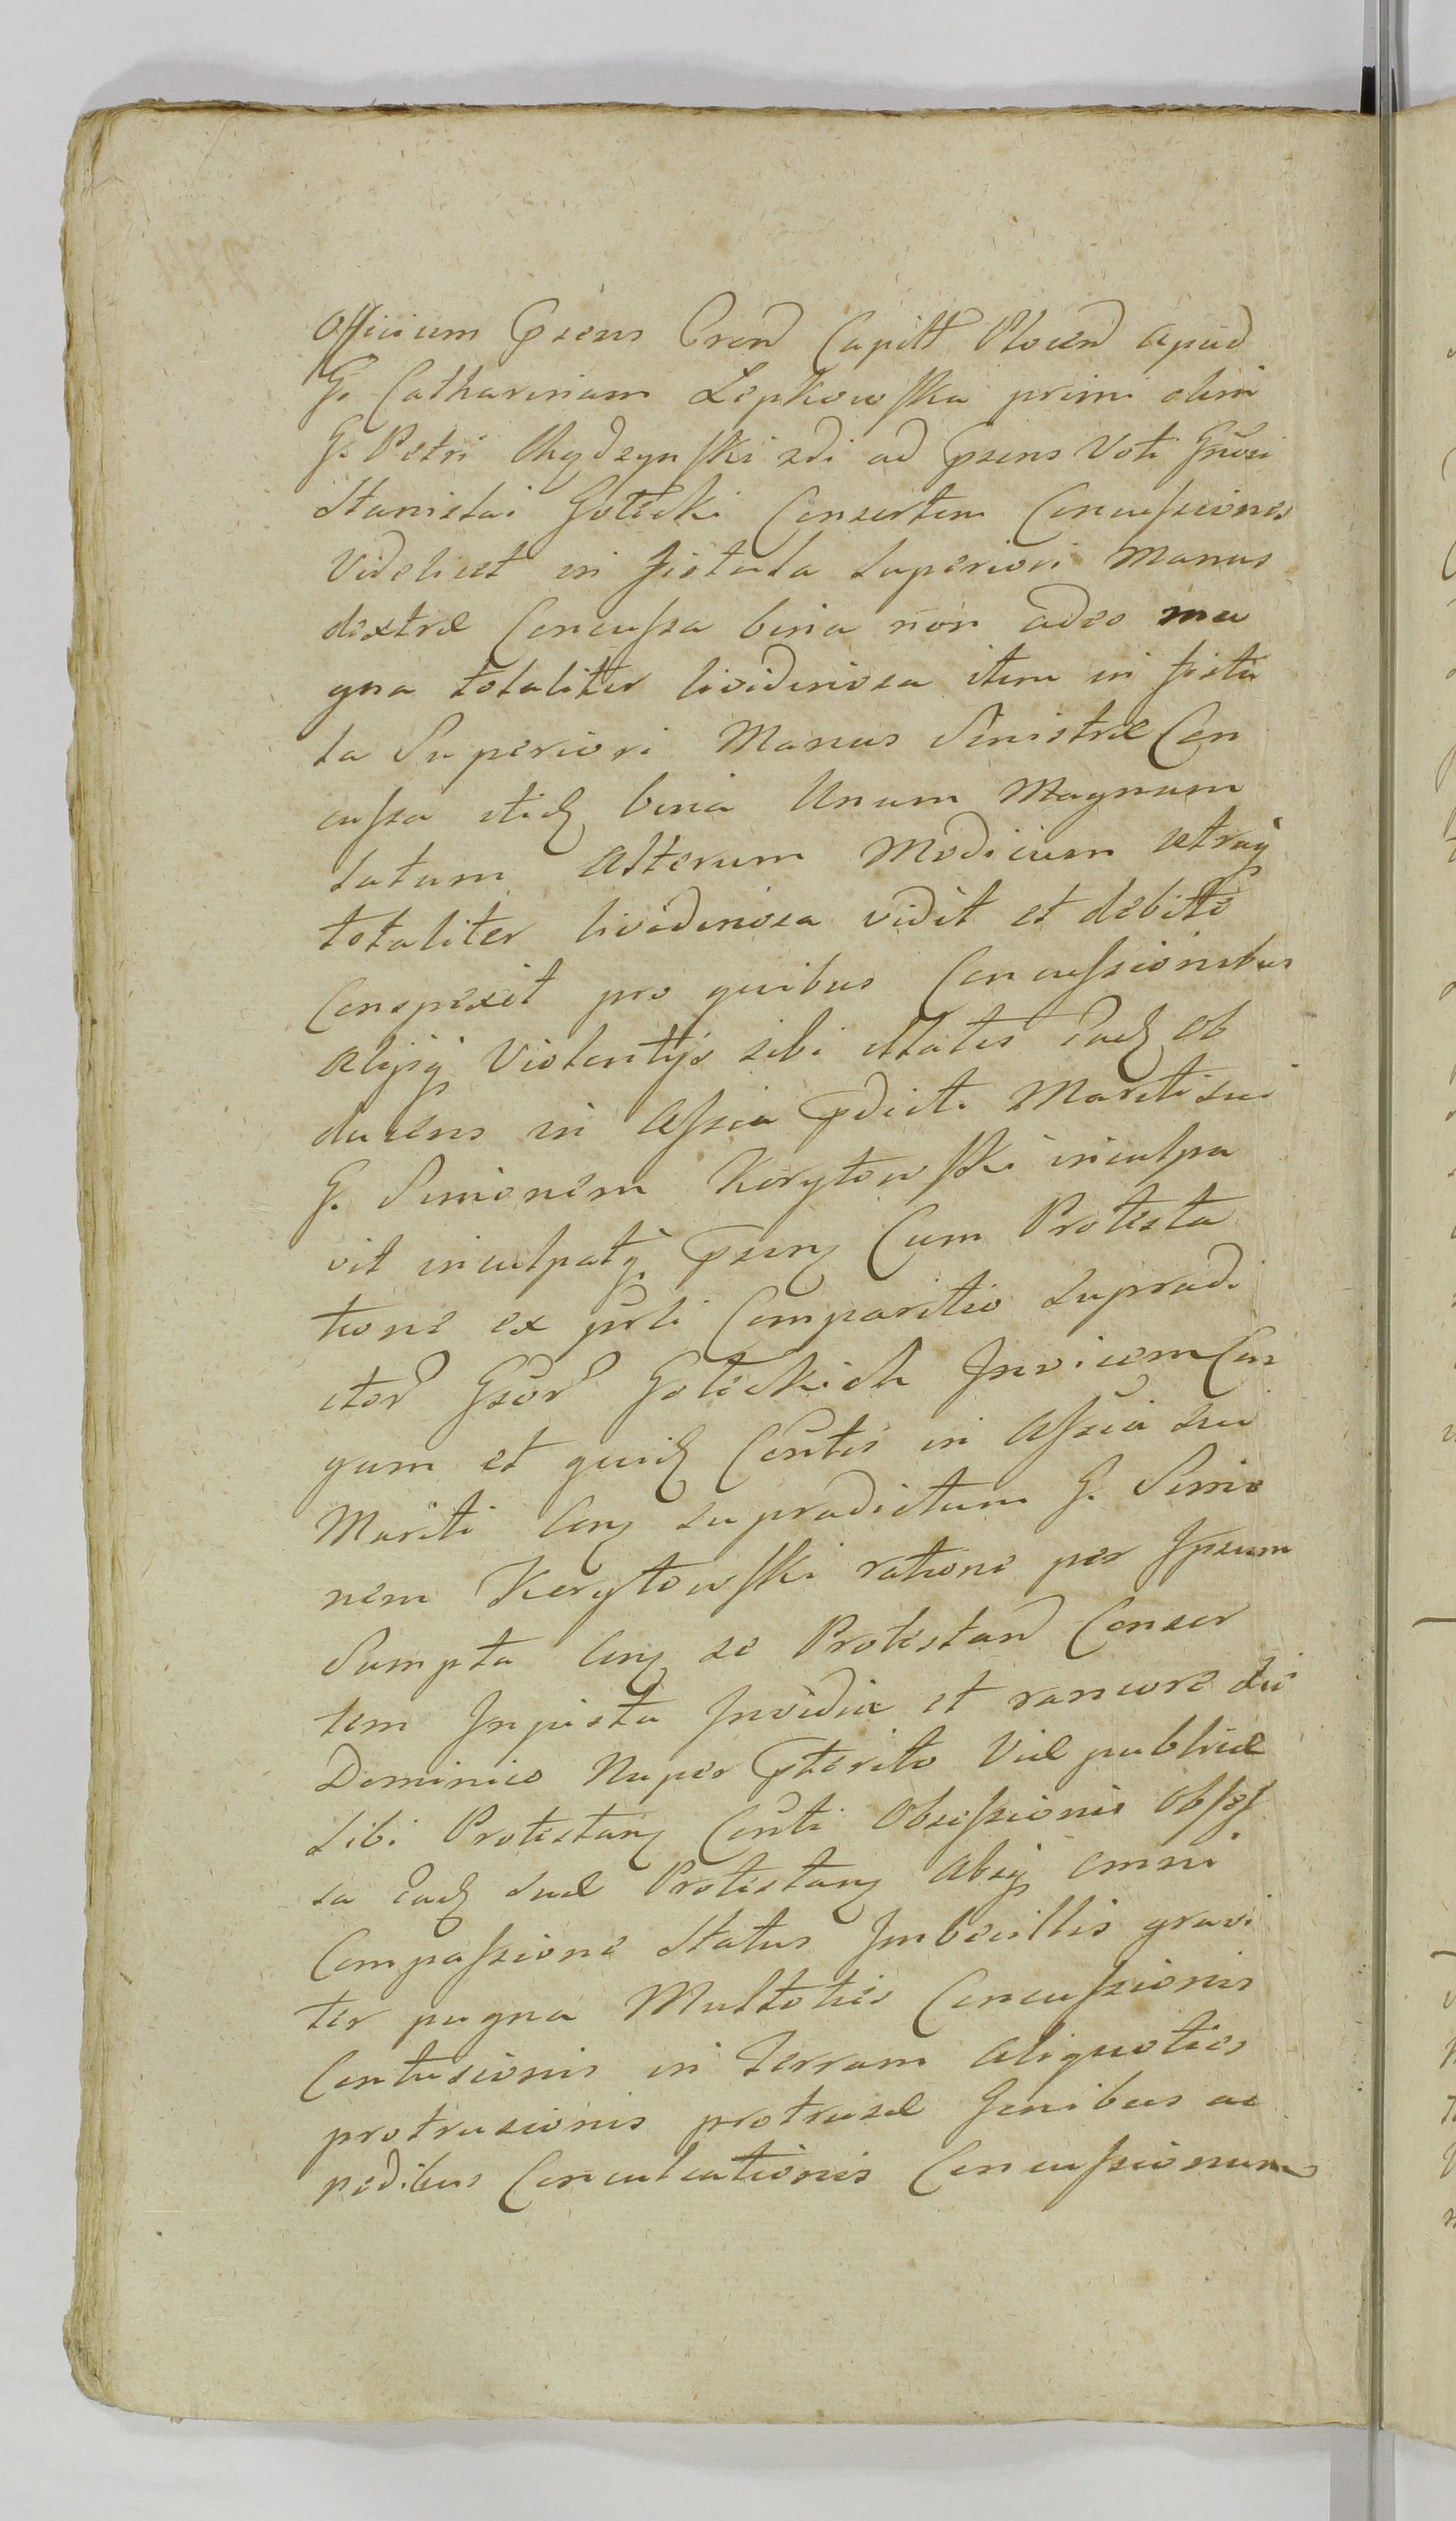 Officium Psens Cren Capitl Plocen apud
G. Catharinam Lepkowska primi olim
G. Petri Chydzynski 2di ad psens Voti Gnŏsi
Stanislai Gotecki Consortem Concussiones
Videlicet in fistula superiori Manus
dextræ Concussa bina non adeo ma
gna totaliter lividinosa item in fistu
la Superiori Manus Sinistræ Con
cussa itid bina Unum Magnum
latum alterum Modicum utraq
totaliter lividinosa vidit et debite
Conspexit pro quibus Concussionibus
alijsq Violentijs sibi illatis ead ob
ducens in assia pdicti Mariti sui
G. Simonem Korytowski inculpa
vit inculpatq psenq Cum Protesta
tione ex puli Comparitio supradi
ctor Gsor Goteckich Invicem Con
gum et quid Contis in assia sui
Mariti Conq supradictum G. Simo
nem Korytowski ratione per Ipsum
Sumpta Conq se Protestan Consor
tem Injusta Invidia et rancore die
Dominico Nuper pterito Viæ publicæ
sibi Protestanq Conti Obsessionis obses
sa ead suæ Protestanq absq omni
Compassione Status Imbecillis gravi
ter pugna Multoties Concussionis
Contusionis in terram aliquoties
protrusionis protrusæ Genibus ac
pedibus Conculcationis Concussionum